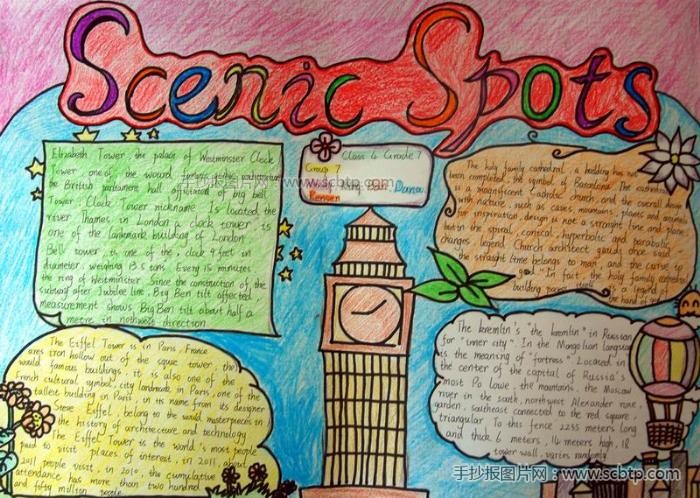 Scenic Spots
Elizabeth Tower, the palace of Westminster Clock
Tower, one of the world
the British parliament hall affiliated of big bell
Tower Clock Tower nickname. Is located the
river Thames in London a clock tower, is
one of the landmark building of London
Bell tower, is one of the, clock 9 feet in
diameter, weighing 13.5 tons. Every 15 minutes
the ring of Westminster. Since the construction of the
subway after Jubilee line, Big Ben tilt affected
measurement shows Big Ben tilt about half a
metre in northwest direction
Class 6 Grade 7
Group 7
www.scbtp.com
Rensen
The holy family cathedral, a building has not
been completed, the symbol of Barcelona. The cathedral
is a magnificent Catholic church, and the overall design
with nature, such as caves, mountains, plants and animals
for inspiration, design is not a straight line and plane,
but in the spiral, conical, hyperbolic and parabolic
changes, legend Church architect gaudi once said:
"the straight time belongs to man, and the curve to
god." In fact, the holy family cathedral
building
the hand of god
The Eiffel Tower is in Paris, France
ares iron hollow out of the square tower, the
world famous buildings, it is also one of the
French cultural symbol, city landmark in Paris, one of the
tallest building in Paris, in its name from its designer
Steve Eiffel, belong to the world masterpieces in
the history of architecture and technology
The Eiffel Tower is the world's most people
paid to visit places of interest, in 2011, about
people visit, in 2010, the cumulative
attendance has more than two hundred
and fifty million people
The kremlin's "the kremlin" in Russian
for "inner city". In the Mongolian language
is the meaning of "fortress". Located in
the center of the capital of Russia's
most Po Lowie, the mountains, the Moscow
river in the south, northwest Alexander rone
garden, southeast connected to the red square,
triangular. To this fence 2235 meters long
and thick 6 meters, 14 meters high, 18
tower wall, varies randomly
手抄报图片网：www.scbtp.com